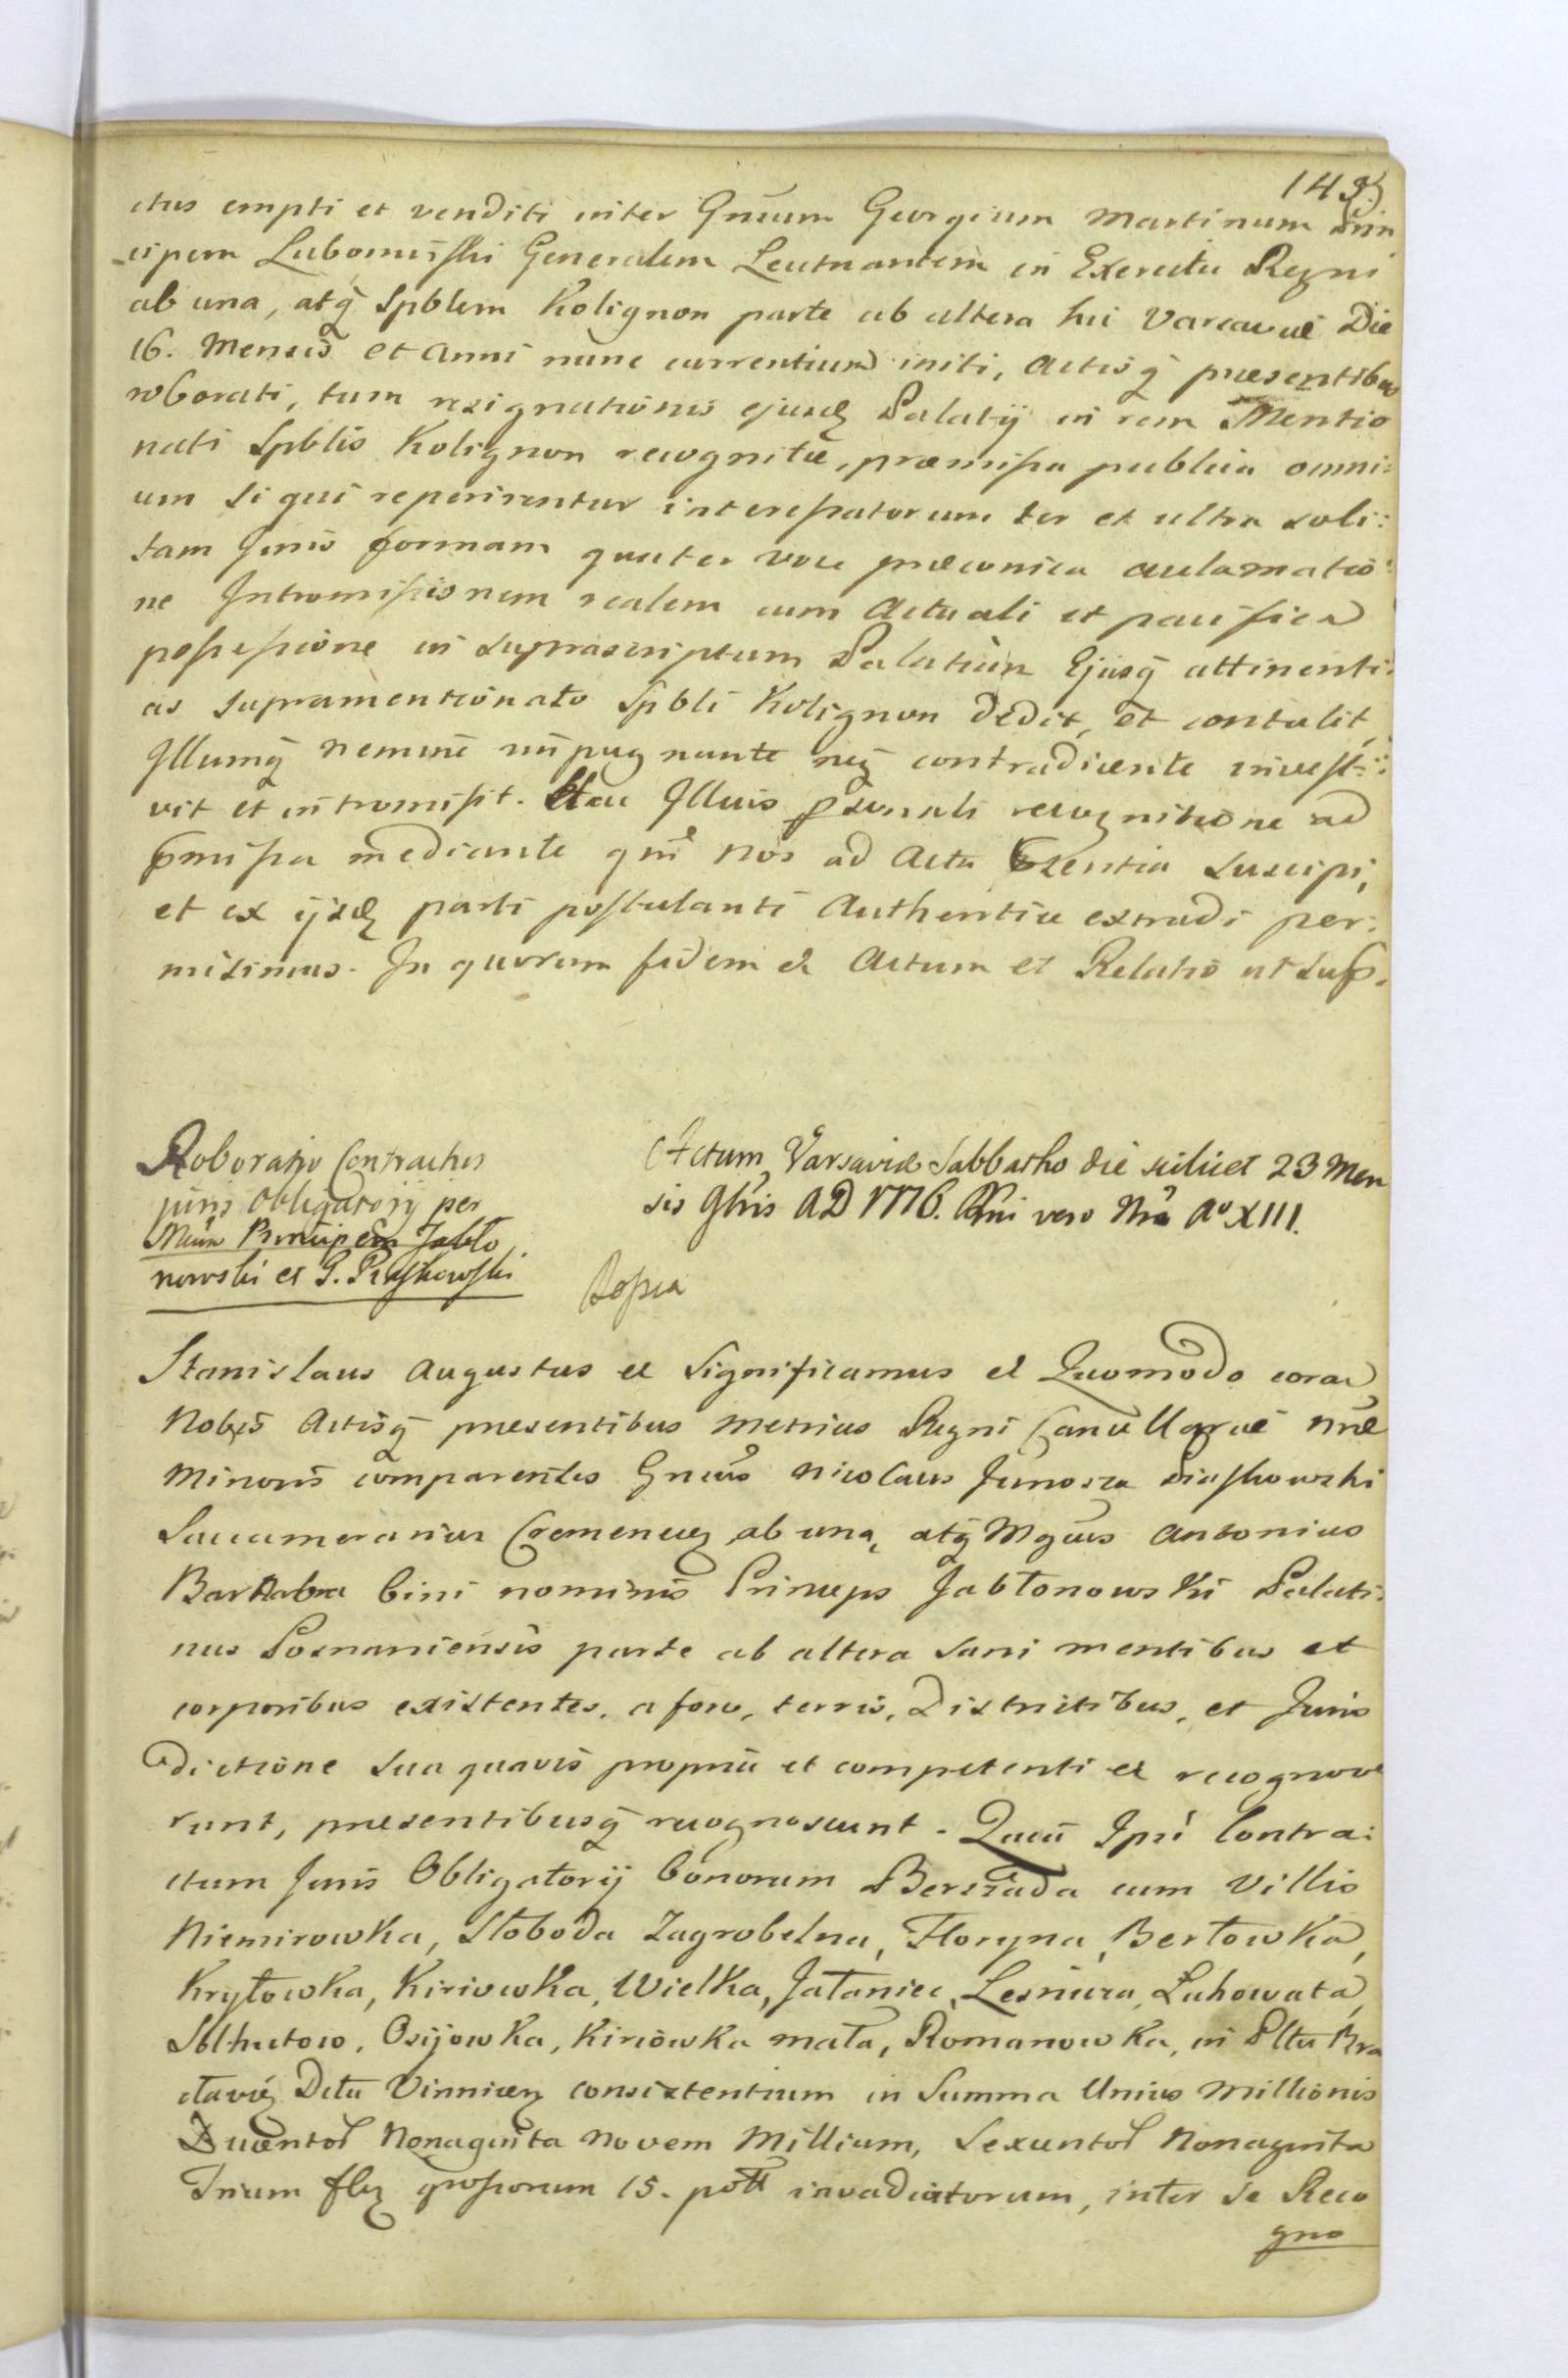 143)
ctus empti et venditi inter Gnũum Georgium Martinum Prin
cipem Lubomirski Generalem Leutnantem in Exercitu Regni
ab una, atq̃ Spblem Kolignon parte ab altera hic Varsaviæ Die
16. Mensis et Anni nunc currentium initi, Actisq̃ præsentibus
roborati, tum resignationis ejusd̨ Palatij in rem Mentio
nati Spblis Kolignon recognitæ, præmissa publica omni:
um si qui reperirentur interessatorum ter et ultra soli:
tam Juris formam quater voce præconica acclamatio:
ne Intromissionem realem cum Actuali et pacifica
possessione in suprascriptum Palatium Ejusq̃ attinenti:
as supramentionato Spbli Kolignon dedit, et contulit,
Illumq̃ nemine impugnante neq̃ contradicente investi:
vit et intromisit. Hac Illius psonali recognitione ad
pmissa mediante quã Nos ad Acta psentia suscipi,
et ex ijsd̨ parti postulanti Authentice extradi per:
misimus. In quorum fidem et Actum et Relatio ut sup.
Roboratio Contractus
juris obligatorij per
Mcũm Principem Jabło
nowski et G. Piaskowski
Actum Varsaviæ Sabbatho die scilicet 23 Men
sis 9bris AD 1776. Rñi vero Nrĩ Aº XIII.
Rossia
Stanislaus Augustus et Significamus et Quomodo coram
Nobis Actisq̃ præsentibus Metrices Regni Cancellariæ Nræ
Minoris comparentes Gnũus Nicolaus Junosza Piaskowski
Succamerarius Cremenecȝ ab una, atq̃ Mgũs Antonius
Barnaba bini nominis Princeps Jabłonowski Palati:
nus Posnaniensis parte ab altera sani mentibus et
corporibus existentes, a foro, terris, Districtibus, et Juris
dictione sua quavis propria et competenti et recognove
runt, præsentibusq̃ recognoscunt. Quia Ipsi Contra:
ctum Juris Obligatorij bonorum Berszada cum Villis
Niemirowka, Słoboda Zagrobelna, Floryna, Bertowka,
Kryłowka, Kiriowka, Wielka, Jałaniec, Lesnicza, Łuhowata,
Osijowka, Kiriowka mała, Romanowka, in Plttu Bra
claviȩ Dctu Vinnicȩ consistentium in Summa Unius Millionis
Ducentor Nonaginta Novem Millium, Sexcentor Nonaginta
Trium flȝ grossorum 15. poll invadiatorum, inter se Reco
gno